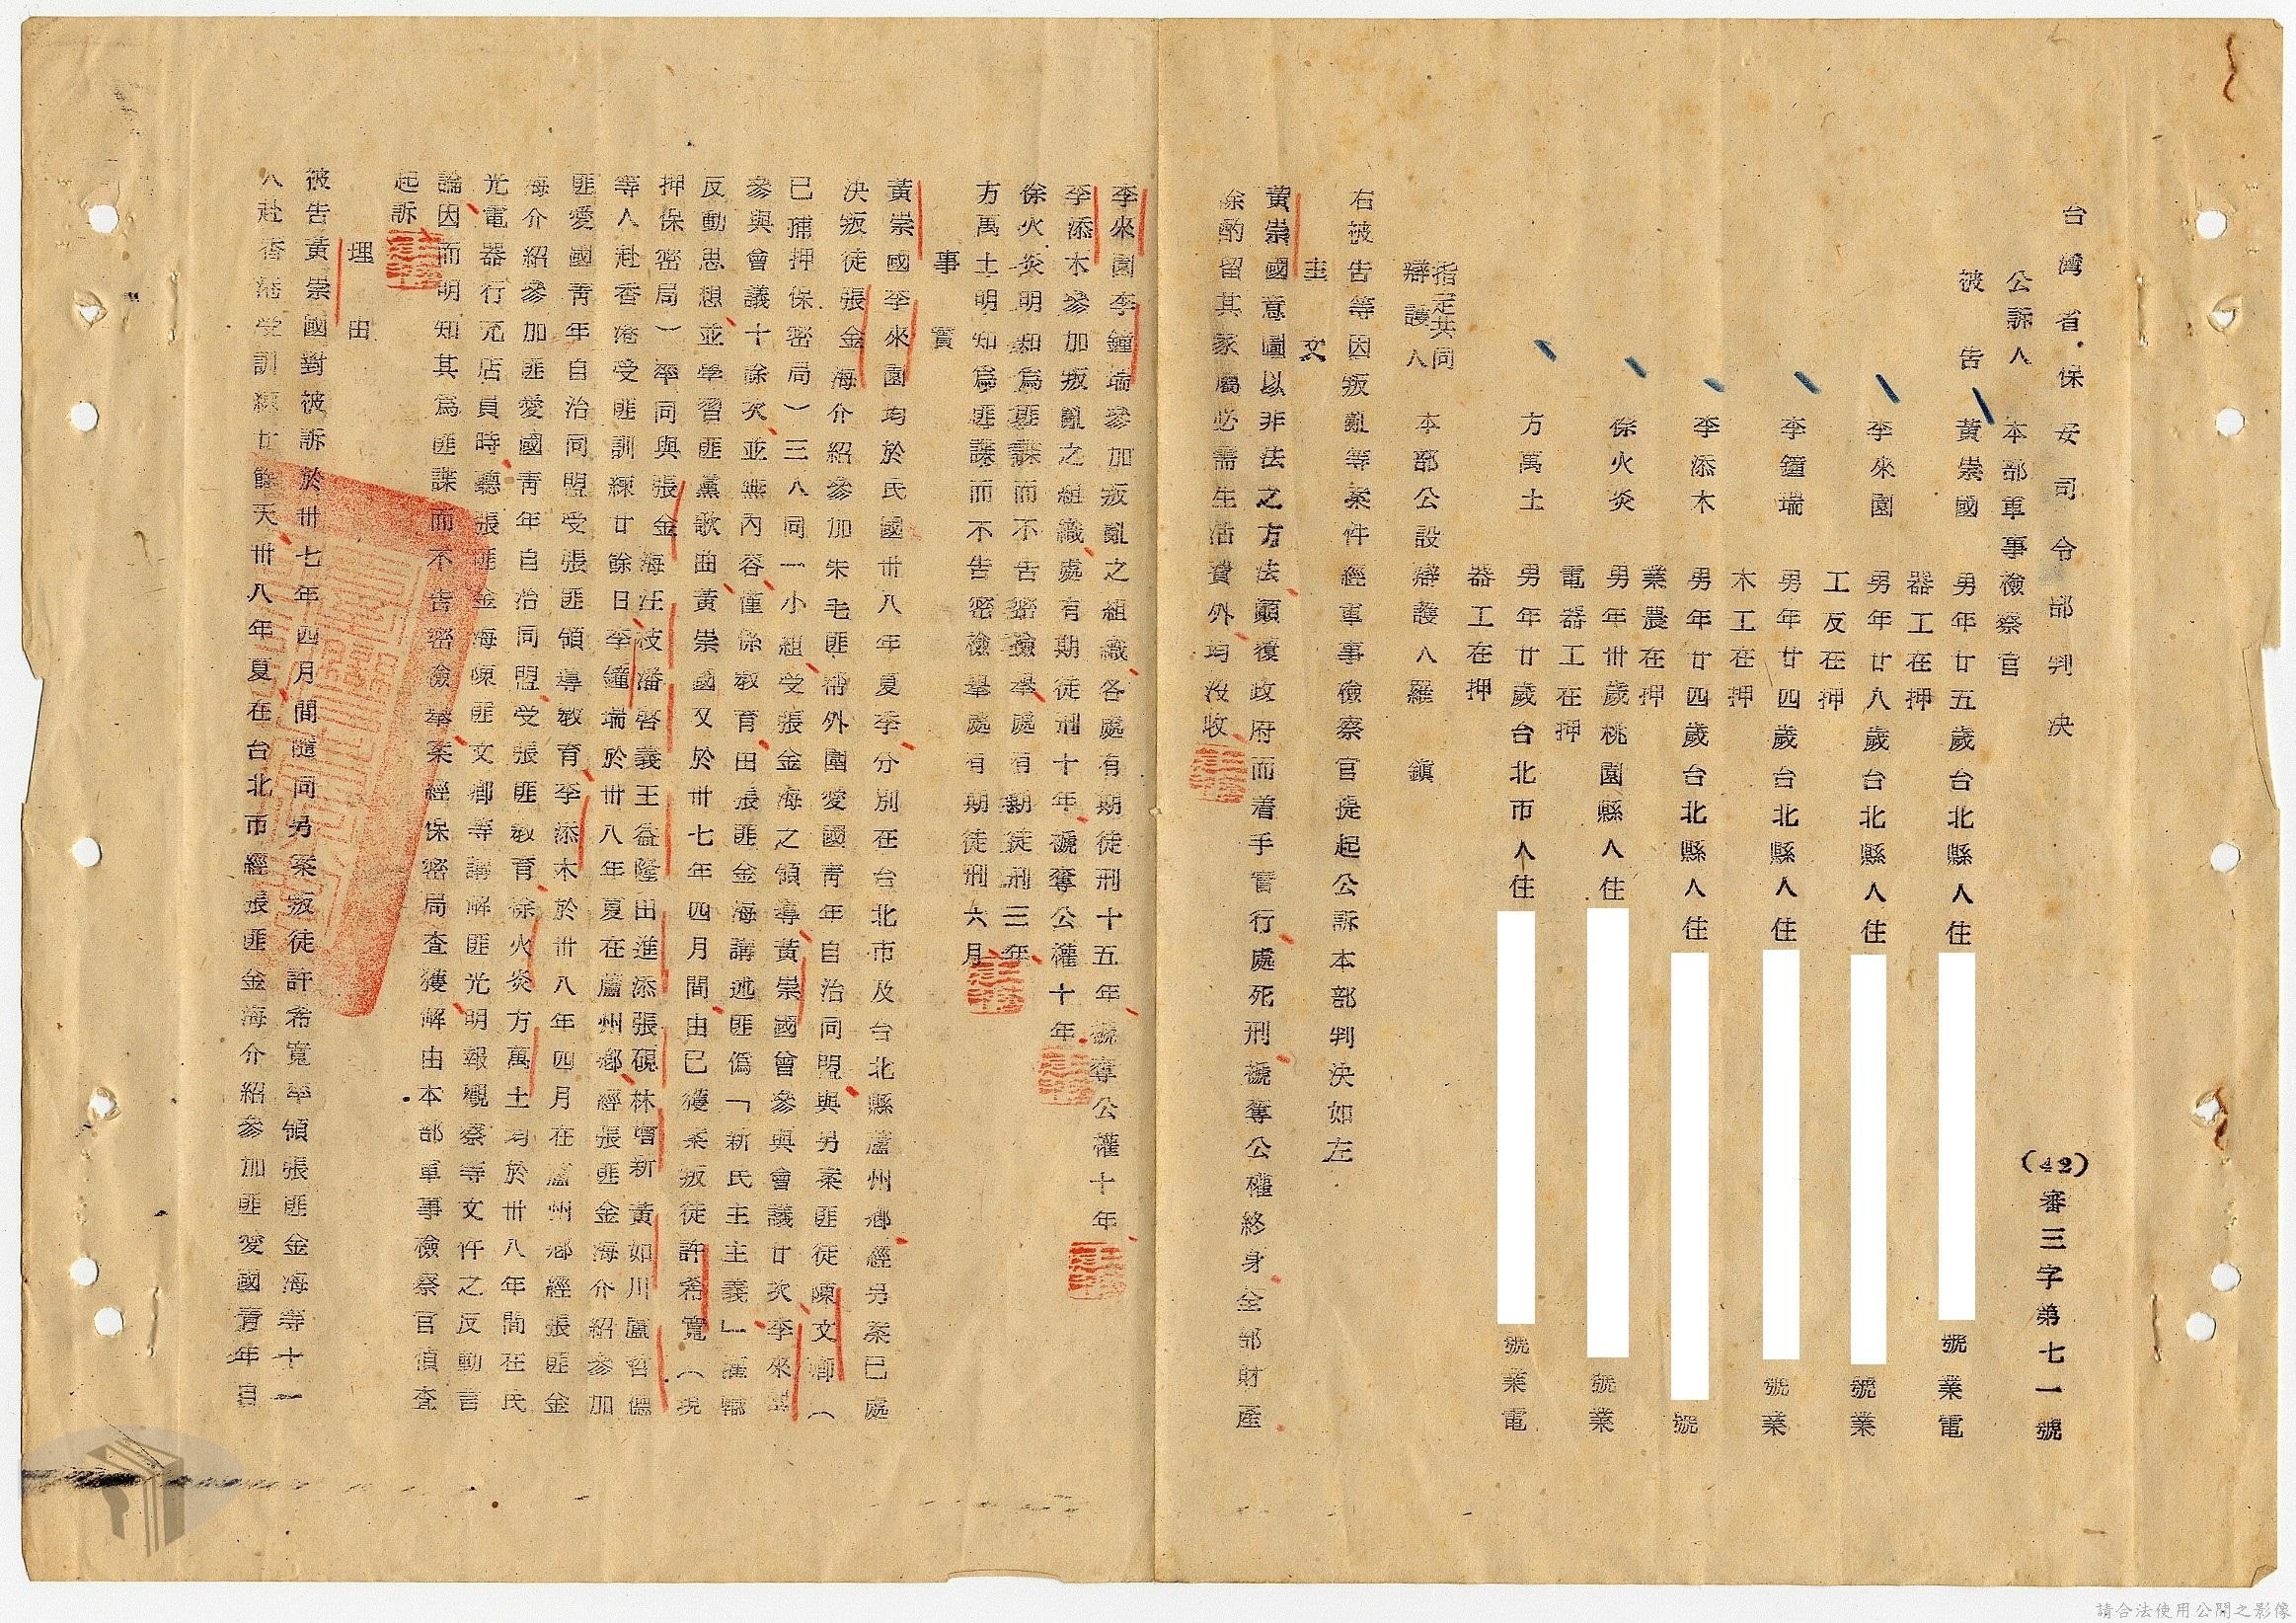 台灣省保安司令部判決
(42)審三字第七一號
公訴人 本部軍事檢察官
被告 黃崇國 男年廿五歲台北縣人住 號業電
器工在押
李來園 男年廿八歲台北縣人住 號業
工反在押
李鐘瑞 男年廿四歲台北縣人住 號業
木工在押
李添木 男年廿四歲台北縣人住 號
業農在押
徐火炎 男年卅歲桃園縣人住 號業
電器工在押
方萬土 男年廿歲台北市人住 號業電
器工在押
指定共同
辯護人 本部公設辯護人羅 鎮
右被告等因叛亂等案件經軍事檢察官提起公訴本部判決如左
主文
黃崇國意圖以非法之方法顛復政府而着手實行處死刑褫奪公權終身全部財產
除酌留其家屬必需生活費外均沒收
李來園李鐘瑞參加叛亂之組織各處有期徒刑十五年褫奪公權十年
李添木參加叛亂之組織處有期徒刑十年褫奪公權十年
徐火炎明知為匪諜而不告密檢舉處有期徒刑三年
方萬土明知為匪諜而不告密檢舉處有期徒刑六月
事實
黃崇國李來園均於民國卅八年夏季分別在台北市及台北縣蘆州鄉經另案已處
決叛徒張金海介紹參加朱毛匪幫外圍愛國青年自治同盟與另案匪徒陳文鄉(
已捕押保密局)三人同一小組受張金海之領導黃崇國曾參與會議廿次李來園
參與會議十餘次並無內容僅係教育由張匪金海講述匪偽「新民主主義」灌輸
反動思想並學習匪黨歌曲黃崇國又於卅七年四月間由已獲案叛徒許希寬(現
押保密局)率同與張金海汪枝潘啓義王益隆田進添張硯林曾新黃如川盧哲儒
等人赴香港受匪訓練廿餘日李鐘瑞於卅八年夏在蘆州鄉經張匪金海介紹參加
匪愛國青年自治同盟受張匪領導教育李添木於卅八年四月在蘆州鄉經張匪金
海介紹參加匪愛國青年自治同盟受張匪教育徐火炎方萬土均於卅八年間在民
光電器行充店員時聽張匪金海陳匪文鄉等講解匪光明報觀察等文件之反動言
論因而明知其為匪諜而不告密檢舉案經保密局查獲解由本部軍事檢察官偵查
起訴
理由
被告黃崇國對被訴於卅七年四月間隨同另案叛徒許希寬率領張匪金海等十一
人赴香港受訓練廿餘天卅八年夏在台北市經張匪金海介紹參加匪愛國青年自
請合法使用公開之影像